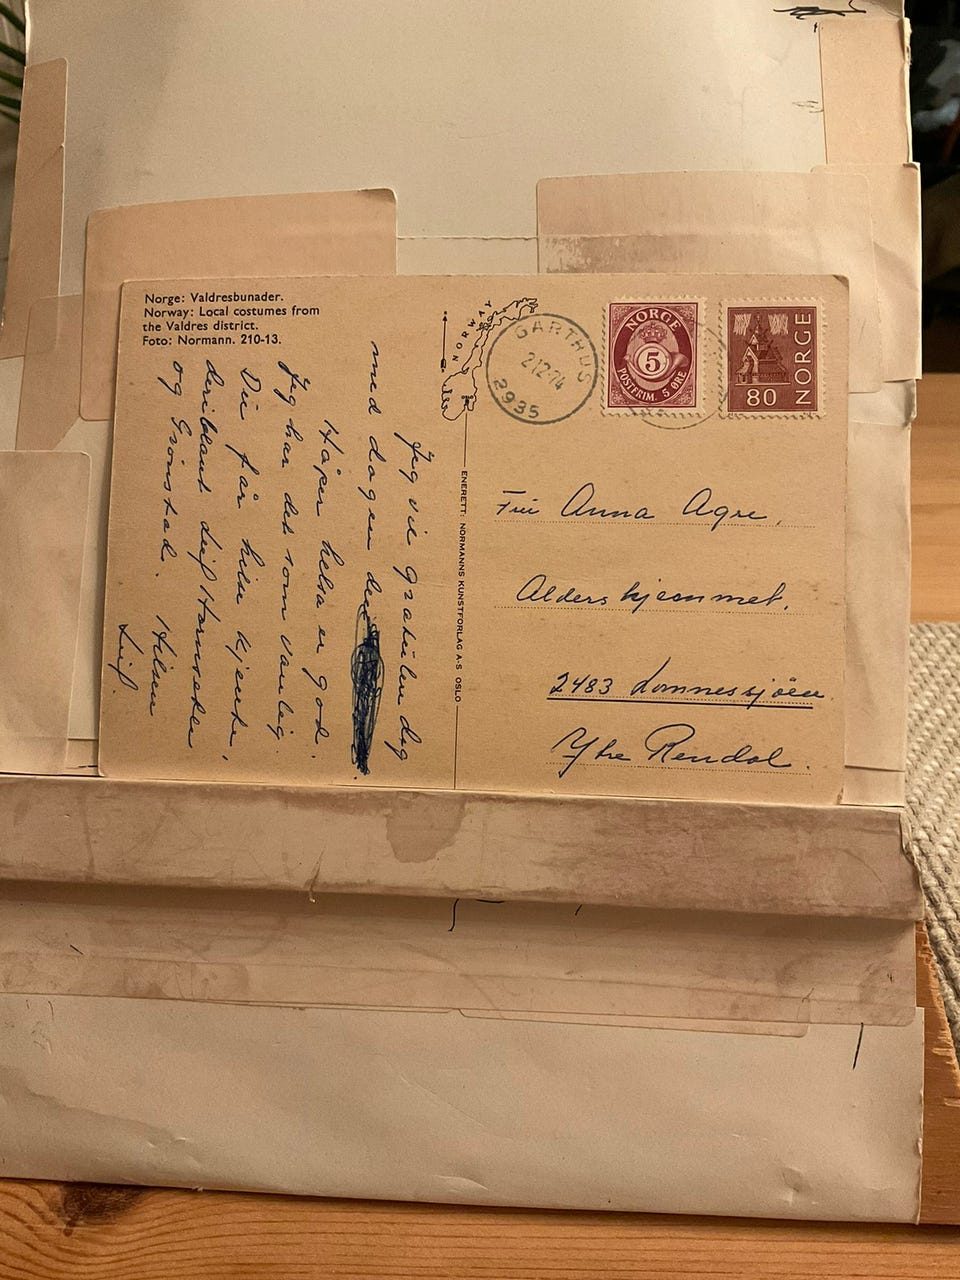 Norge: Valdresbunader.
Norway: Local costumes from
the Valdres district.
Foto: Normann. 210-13.
NORWAY
GARTHUS
21274
2935
NORGE
5
POSTFRIM. 5 ØRE
NORGE
80
Jeg vil gratulere dig
med dagen
Håper helsa er god.
Jeg har det som vanlig.
Du får hilse kjente,
deriblant Leif
og Grönstad. Hilsen
Leif.
ENERETT: NORMANNS KUNSTFORLAG A-S OSLO
Fru Anna Agre.
Aldershjemmet.
2483 Lomnessjöen.
Ytre Rendal.